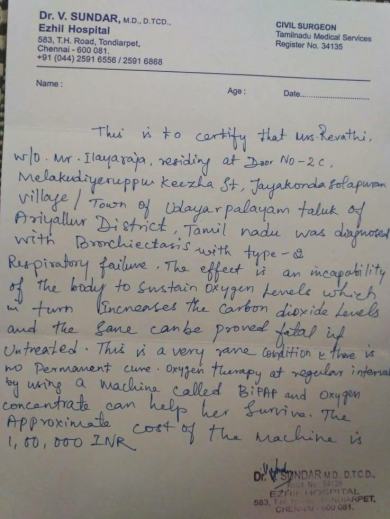 Dr. V. SUNDAR, M.D., D.TCD.,
Ezhil Hospital
583, T.H. Road, Tondiarpet,
Chennai - 600 081.
+91 (044) 2591 6556 / 2591 6868
CIVIL SURGEON
Tamilnadu Medical Services
Register No. 34135
Name :
Age :
Date................
This is to certify that Mrs. Revathi.
w/o. Mr. Ilayaraja, residing at Door No-2C,
Melakudiyeruppu Keezha St, Jayakondasolapuram
village / Town of Udayarpalayam taluk of
Ariyallur District, Tamil nadu was diagnosed
with Bronchiectasis with type-2
Respiratory failure. The effect is an incapability
of the body to sustain oxygen levels which
in turn increases the carbon dioxide levels
and the same can be proved fatal if
Untreated. This is a very rare condition & there is
no Permanent cure. Oxygen therapy at regular interval
by using a machine called BiPAP and oxygen
concentrate can help her survive. The
Approximate cost of the machine is
1,00,000 INR
Dr. V. SUNDAR M.D. D.T.C.D.,
EZHIL HOSPITAL
CHENNAI - 600 081.